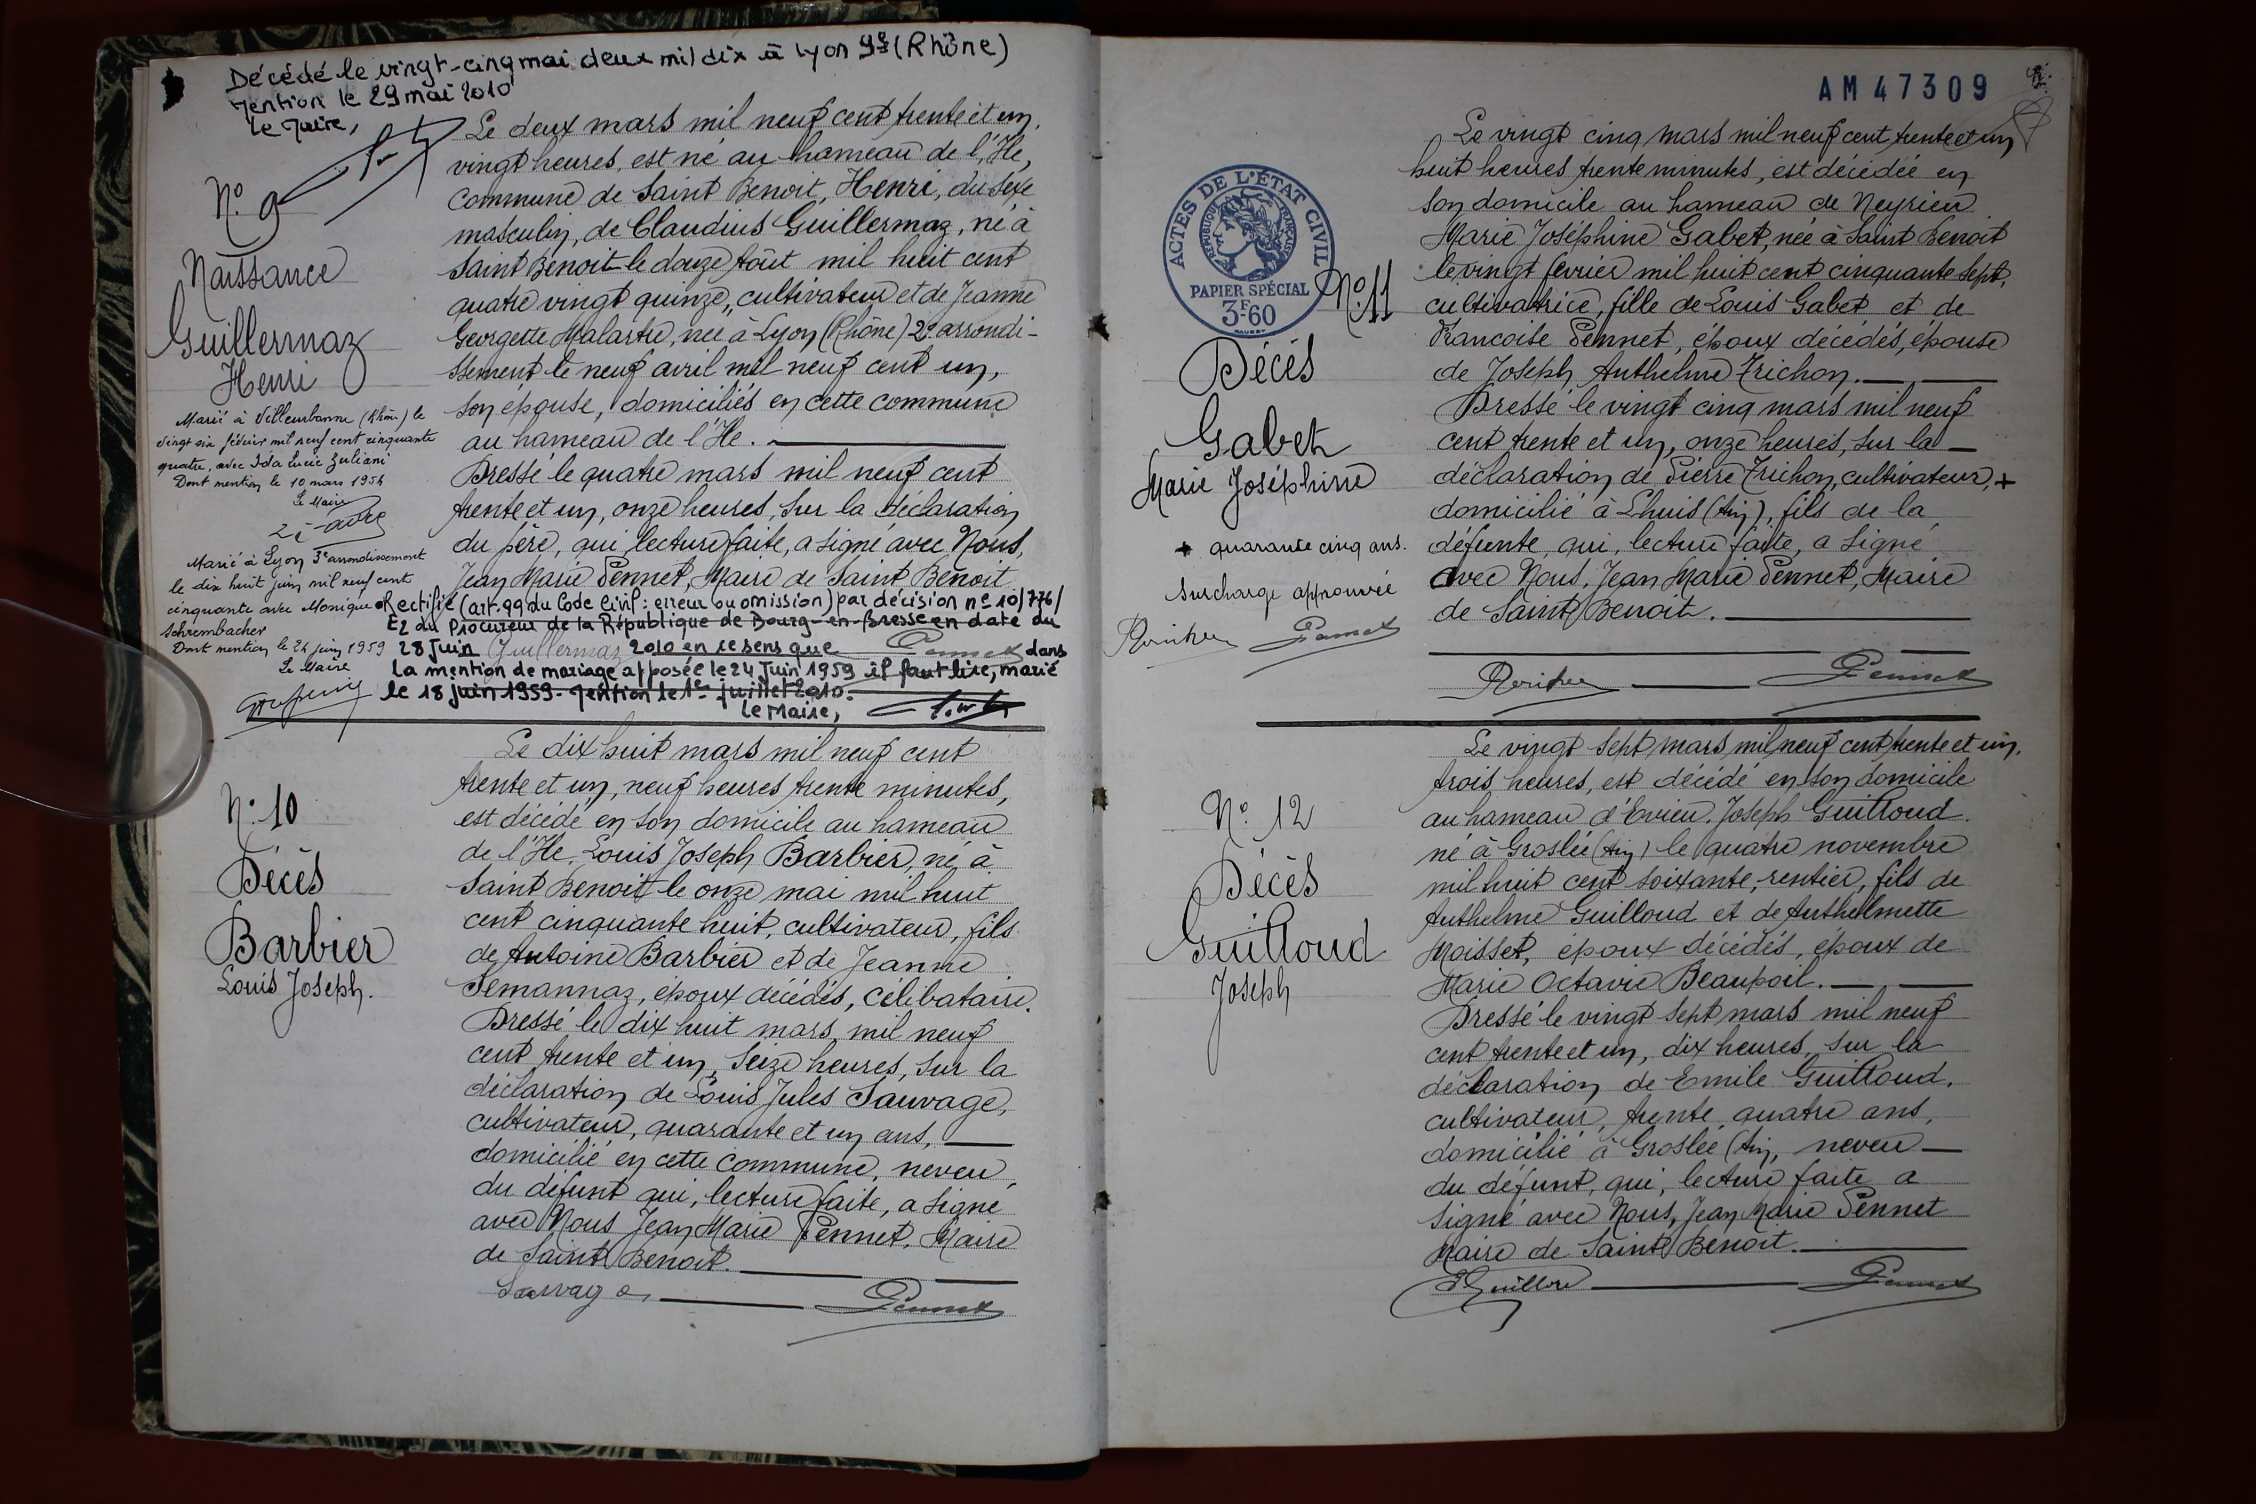 Décédé le vingt-cinq mai deux mil dix à Lyon 9e (Rhône)
Mention le 29 mai 2010
Le Maire,
N° 9
Naissance
Guillermaz
Henri
Marié à Villeurbanne (Rhône) le
vingt six février mil neuf cent cinquante
quatre, avec Ida Lucie Zuliani
Dont mention le 10 mars 1954
Le Maire
Marié à Lyon 3e arrondissement
le dix huit juin mil neuf cent
cinquante avec Monique
Schrembacher
Dont mention le 24 juin 1959
Le Maire
Le deux mars mil neuf cent trente et un,
vingt heures, est né au hameau de l'Ile,
commune de Saint Benoit, Henri, du sexe
masculin, de Claudius Guillermaz, né à
Saint Benoit le douze Août mil huit cent
quatre vingt quinze, cultivateur et de Jeanne
Georgette Malartre, née à Lyon (Rhône) 2e arrondi-
ssement le neuf avril mil neuf cent un,
son épouse, domiciliés en cette commune
au hameau de l'Ile.
Dressé le quatre mars mil neuf cent
trente et un, onze heures, sur la déclaration
du père, qui, lecture faite, a signé avec Nous,
Jean Marie Pennet, Maire de Saint Benoit
Rectifié (art. 99 du Code Civil : erreur ou omission) par décision n° 10/776/
E2 du Procureur de la République de Bourg-en-Bresse en date du
28 Juin Guillermaz 2010 en ce sens que Pennet dans
la mention de mariage apposée le 24 Juin 1959 il faut lire, marié
le 18 juin 1959 - Mention le 1er juillet 2010.
Le Maire,
N° 10
Décès
Barbier
Louis Joseph.
Le dix huit mars mil neuf cent
trente et un, neuf heures trente minutes,
est décédé en son domicile au hameau
de l'Ile, Louis Joseph Barbier, né à
Saint Benoit le onze mai mil huit
cent cinquante huit, cultivateur, fils
de Antoine Barbier et de Jeanne
Semannaz, époux décédés, célibataire.
Dressé le dix huit mars mil neuf
cent trente et un, seize heures, sur la
déclaration de Louis Jules Sauvage,
cultivateur, quarante et un ans,
domicilié en cette commune, neveu
du défunt qui, lecture faite, a signé
avec Nous Jean Marie Pennet, Maire
de Saint Benoit.
Sauvage Pennet
AM 47309
ACTES DE L'ÉTAT CIVIL
RÉPUBLIQUE FRANÇAISE
PAPIER SPÉCIAL
3F60
N° 11
Décès
Gabet
Marie Joséphine
+ quarante cinq ans.
surcharge approuvée
Pennet
Le vingt cinq mars mil neuf cent trente et un
huit heures trente minutes, est décédée en
son domicile au hameau de Neyrieu
Marie Joséphine Gabet, née à Saint Benoit
le vingt février mil huit cent cinquante sept,
cultivatrice, fille de Louis Gabet et de
Francoise Pennet, époux décédés, épouse
de Joseph Anthelme Trichon.
Dressé le vingt cinq mars mil neuf
cent trente et un, onze heures, sur la
déclaration de Pierre Trichon, cultivateur, +
domicilié à Lhuis (Ain), fils de la
défunte, qui, lecture faite, a signé
avec Nous, Jean Marie Pennet, Maire
de Saint Benoit.
Pennet
N° 12
Décès
Guilloud
Joseph
Le vingt sept mars mil neuf cent trente et un,
trois heures, est décédé en son domicile
au hameau d'Evieu, Joseph Guilloud
né à Groslée (Ain) le quatre novembre
mil huit cent soixante, rentier, fils de
Anthelme Guilloud et de Anthelmette
Moisset, époux décédés, époux de
Marie Octavie Beaupoil.
Dressé le vingt sept mars mil neuf
cent trente et un, dix heures, sur la
déclaration de Emile Guilloud,
cultivateur, trente quatre ans,
domicilié à Groslée (Ain, neveu
du défunt, qui, lecture faite a
signé avec Nous, Jean Marie Pennet
Maire de Saint Benoit.
Pennet